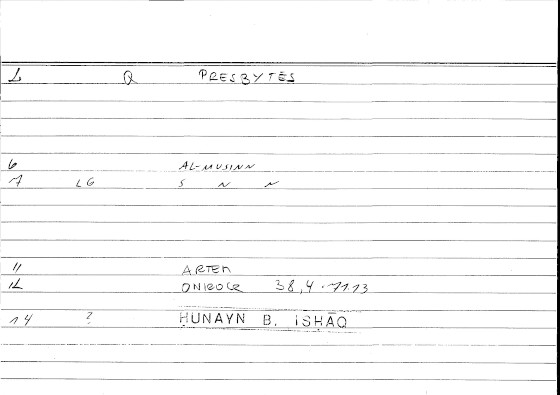 1 Q PRESBYTĒS
6 AL-MUSINN
7 LG S N N
11 ARTEM
12 ONIROCR 38,4 · 7113
14 ? ḤUNAYN B. ISḤĀQ